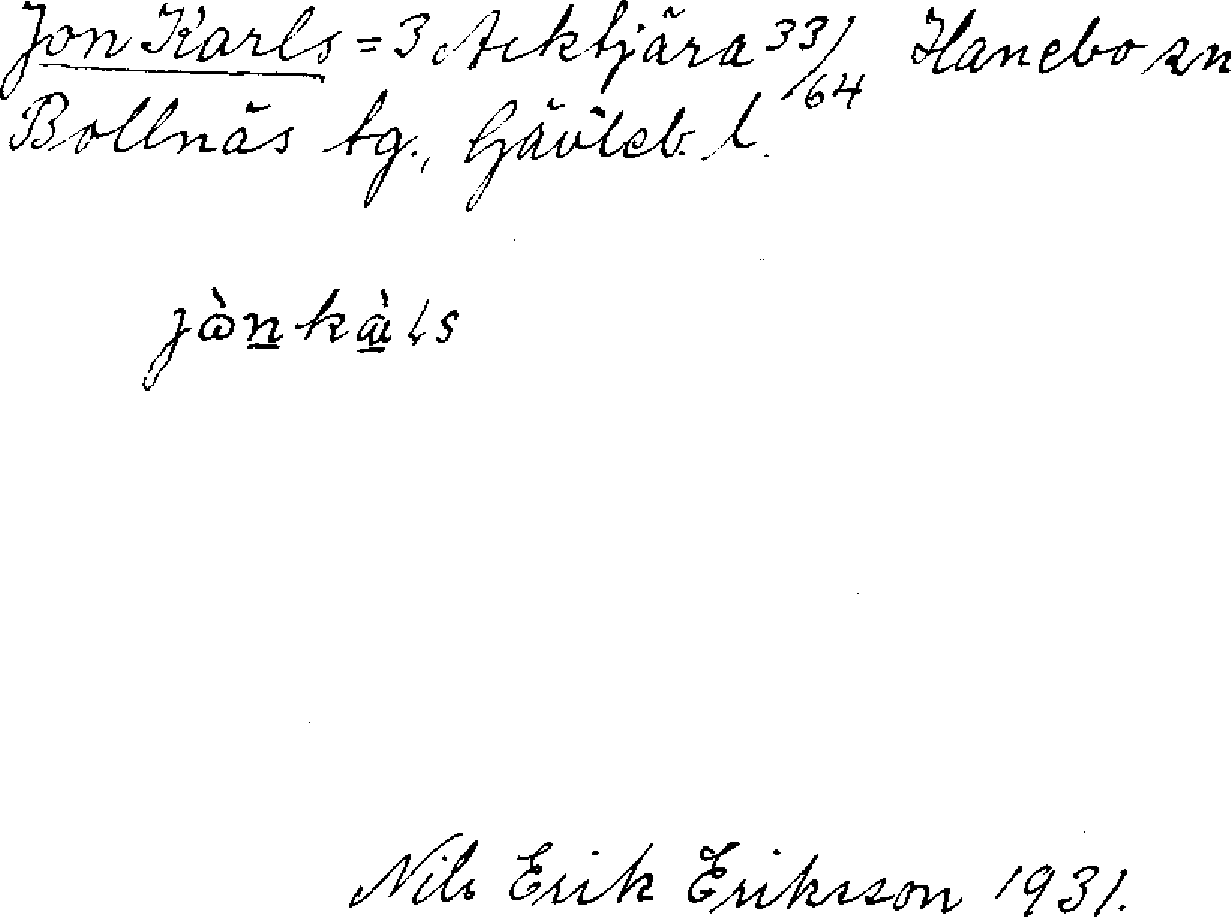 Jon Karls = 3 Acktjära 33/64 Hanebo sn
Bollnäs tg., Gävleb. l.
jὼn kàls
Nils Erik Eriksson 1931.